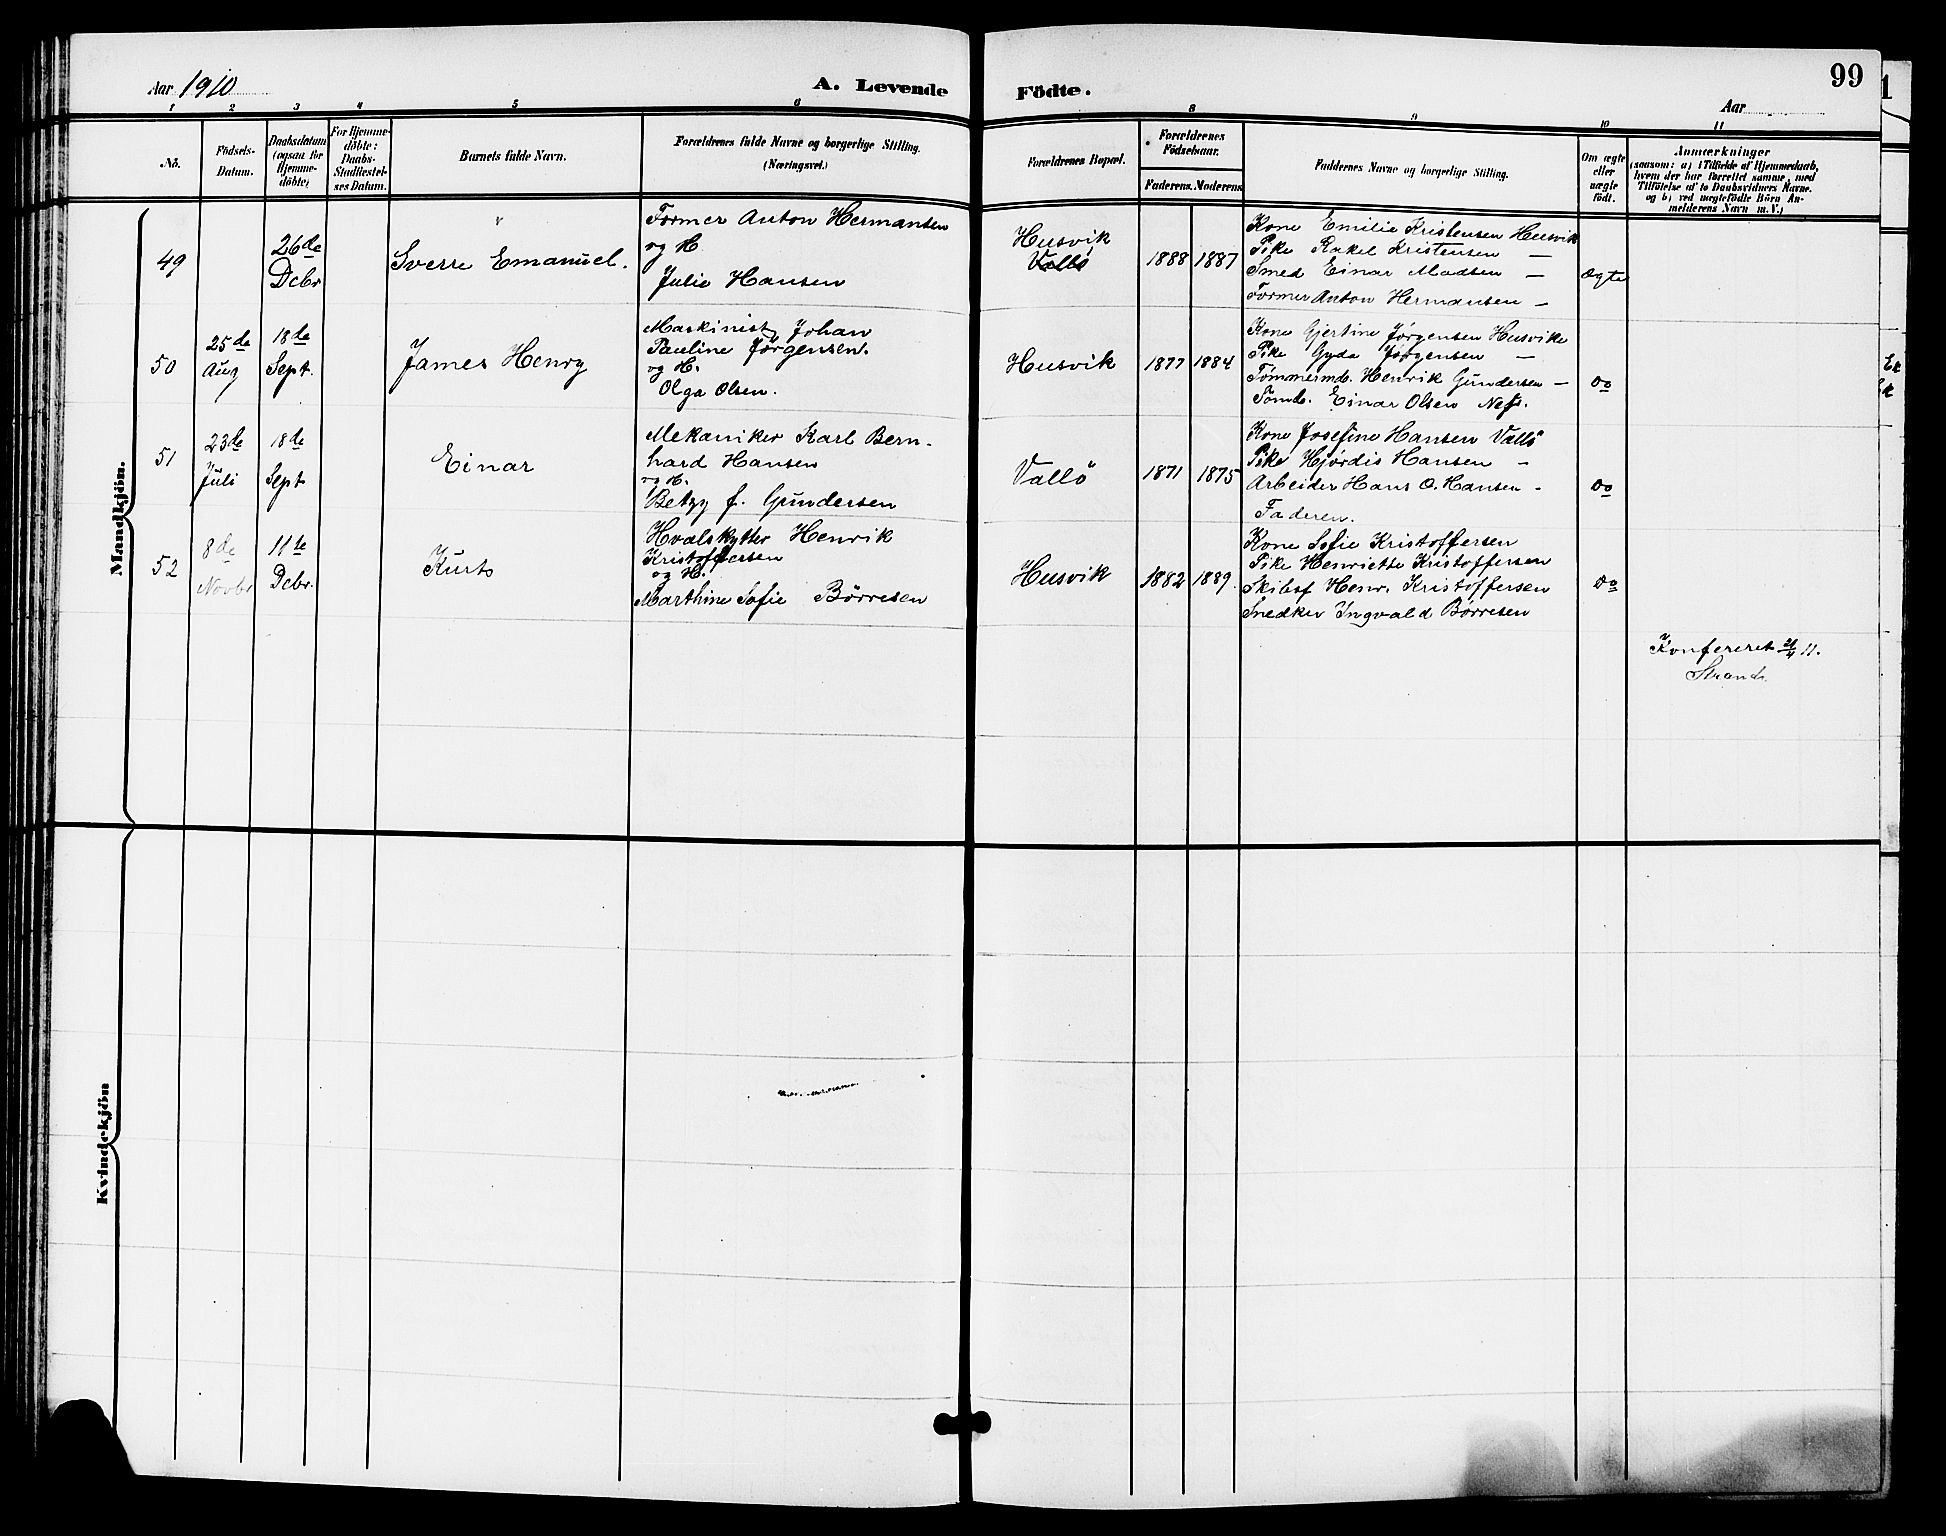 Aar 1910
A. Levende Födte.
99
Aar
1 2 3 4 5 6 8 9 10 11
No.
Födsels-
Datum.
Daabsdatum
(ogsaa for
Hjemme-
döbte)
For Hjemme-
döbte:
Daabs-
Stadfæstel-
ses Datum.
Barnets fulde Navn.
Forældrenes fulde Navne og borgerlige Stilling.
(Næringsvei.)
Forældrenes Bopæl.
Forældrenes
Födselsaar.
Faderens. Moderens.
Faddernes Navne og borgerlige Stilling.
Om ægte
eller
uægte
födt.
Anmærkninger
(saasom: a) i Tilfælde af Hjemmedaab,
hvem der har forrettet samme, med
Tilföielse af to Daabsvidners Navne.
og b) ved uægtefödte Börn An-
melderens Navn m. V.)
Mandkjön.
49
26de
Dcbr
Sverre Emanuel.
Former Anton Hermansen
og H
Julie Hansen
Husvik
Vallö
1888 1887
Kone Emilie Kristensen Husvik
Pike Rakel Kristensen —
Smed Einar Madsen —
Former Anton Hermansen —
Ægte
50
25de
Aug
18de
Sept.
James Henry
Maskinist Johan
Pauline Jörgensen.
og H.
Olga Olsen.
Husvik
1877 1884
Kone Gjertine Jørgensen Husvike
Pike Gyda Jørgensen —
Tømmermd. Henrik Gundersen —
Sömd. Einar Olsen Nes.
do
51
23de
Juli
18de
Sept
Einar
Mekaniker Karl Bern-
hard Hansen
og H.
Betzy f. Gundersen
Vallö
1871 1875
Kone Josefine Hansen Vallö
Pike Hjørdis Hansen -
Arbeider Hans O. Hansen -
Faderen.
do
52
8de
Novbr
11te
Dcbr.
Kurt
Hvalskytter Henrik
Kristoffersen
og H.
Marthine Sofie Börresen
Husvik
1882 1889.
Kone Sofie Kristoffersen
Pike Henriette Kristoffersen
Skibsf Henr. Kristoffersen
Snedker Ingvald Børresen
do
Konfereret 11.
Strand.
Kvindekjön